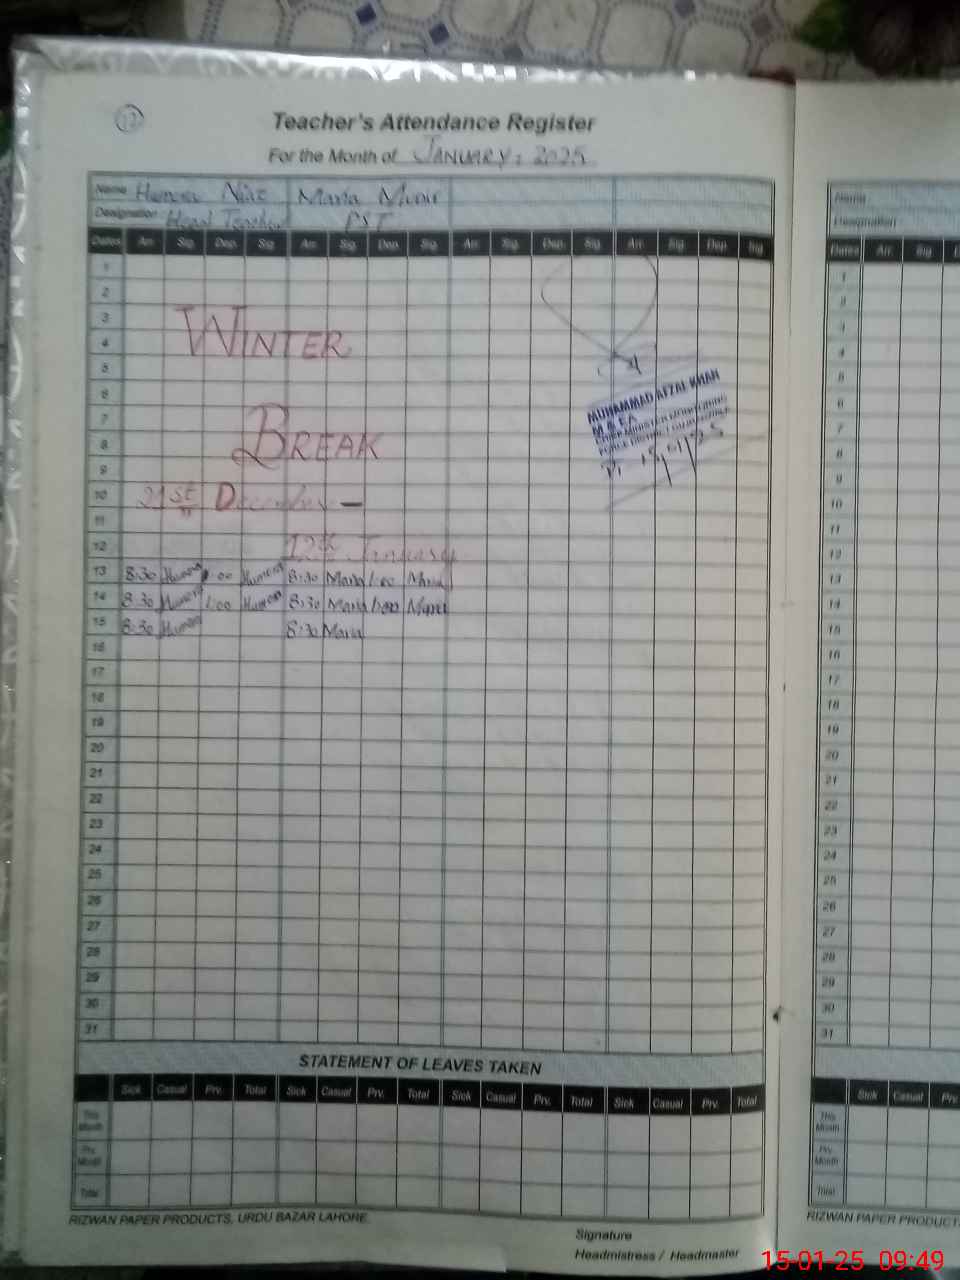 12
Teacher's Attendance Register
For the Month of January, 2025
Name Humera Niaz Maria Munir
Designation Head Teacher PST
Dates Arr. Sig. Dep. Sig. Arr. Sig. Dep. Sig. Arr. Sig. Dep. Sig. Arr. Sig. Dep. Sig.
1
2
3
4
WINTER
5
6
7
8
BREAK
9
10 21st December -
11
12 12th January
13 8:30 Humera 1:00 Humera 8:30 Maria 1:00 Maria
14 8:30 Humera 1:00 Humera 8:30 Maria 1:00 Maria
15 8:30 Humera 8:30 Maria
16
17
18
19
20
21
22
23
24
25
26
27
28
29
30
31
MUHAMMAD AFZAL KHAN
M & EA
15/01/25
STATEMENT OF LEAVES TAKEN
Sick Casual Prv. Total Sick Casual Prv. Total Sick Casual Prv. Total Sick Casual Prv. Total
This Month
Prv. Month
Total
RIZWAN PAPER PRODUCTS, URDU BAZAR LAHORE.
Signature
Headmistress / Headmaster
Name
Designation
Dates Arr. Sig.
1
2
3
4
5
6
7
8
9
10
11
12
13
14
15
16
17
18
19
20
21
22
23
24
25
26
27
28
29
30
31
Sick Casual Prv.
This Month
Prv. Month
Total
RIZWAN PAPER PRODUCT
15-01-25 09:49